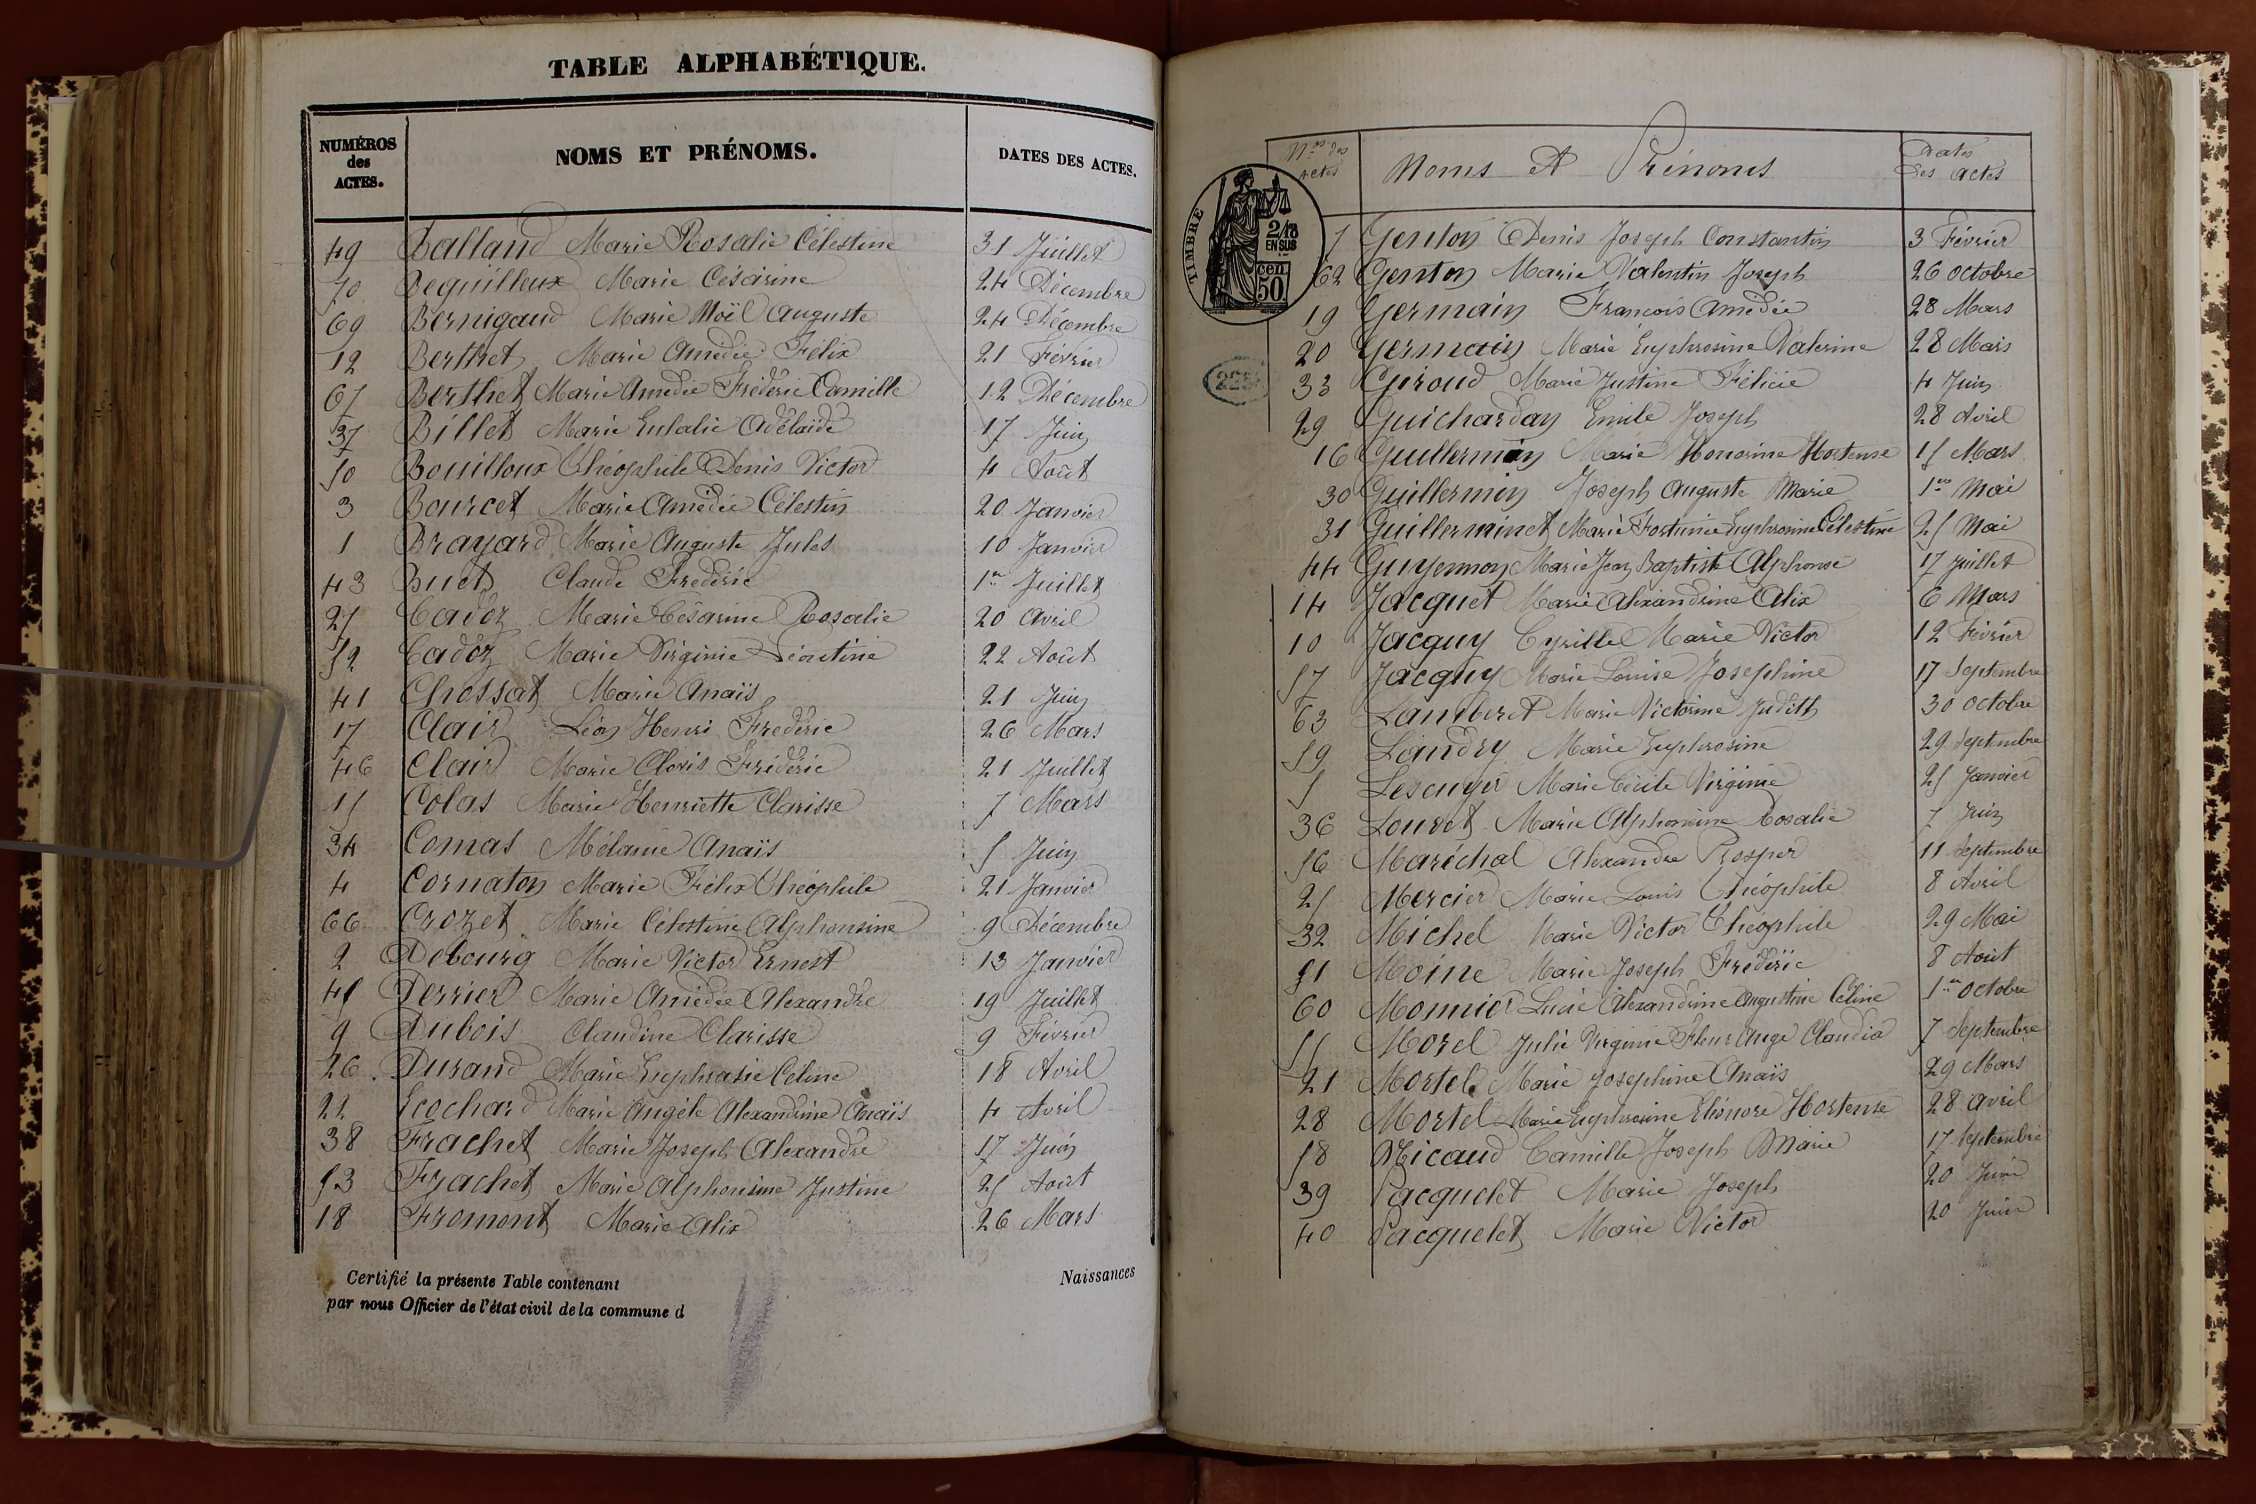 TABLE ALPHABÉTIQUE.
NUMÉROS des ACTES. NOMS ET PRÉNOMS. DATES DES ACTES.
49 Balland Marie Rosalie Célestine 31 Juillet
70 Bequilleux Marie Césarine 24 Décembre
69 Bernigaud Marie Noël Auguste 24 Décembre
12 Berthet Marie Amédée Félix 21 Février
67 Berthet Marie Amédée Fréderic Camille 12 Décembre
37 Billet Marie Eulalie Adélaide 17 Juin
50 Bouilloux Théophile Denis Victor 4 Août
3 Bourcet Marie Amédée Célestin 20 Janvier
1 Brayard Marie Auguste Jules 10 Janvier
43 Buet Claude Fréderic 1er Juillet
27 Cadoz Marie Césarine Rosalie 20 Avril
52 Cadoz Marie Virginie Léontine 22 Août
41 Chossat Marie Anaïs 21 Juin
17 Clair Léon Henri Frederic 26 Mars
46 Clair Marie Clovis Fréderic 21 Juillet
15 Colas Marie Henriette Clarisse 7 Mars
34 Comas Mélanie Anaïs 5 Juin
4 Cornaton Marie Félix Théophile 21 Janvier
66 Crozet Marie Célestine Alphonsine 9 Décembre
2 Debourg Marie Victor Ernest 13 Janvier
45 Derrier Marie Amédée Alexandre 19 Juillet
9 Dubois Claudine Clarisse 9 Février
26 Durand Marie Euphrasie Celine 18 Avril
22 Ecochard Marie Angèle Alexandrine Anaïs 4 Avril
38 Frachet Marie Joseph Alexandre 17 Juin
53 Frachet Marie Alphonsine Justine 25 Août
18 Fromont Marie Alix 26 Mars
Certifié la présente Table contenant Naissances
par nous Officier de l'état civil de la commune d
Nos des actes Noms Et Prénoms Dates des actes
TIMBRE
2/10 EN SUS
50 cen
223
7 Genton Denis Joseph Constantin 3 Février
62 Genton Marie Valentin Joseph 26 octobre
19 Germain François Amédée 28 Mars
20 Germain Marie Euphrosine Valerine 28 Mars
33 Giroud Marie Justine Félicie 4 Juin
29 Guichardan Emile Joseph 28 Avril
16 Guillermin Marie Honorine Hortense 15 Mars
30 Guillermin Joseph Auguste Marie 1er Mai
31 Guillerminet Marie Fortunée Euphrosine Célestine 25 Mai
44 Guyennon Marie Jean Baptiste Alphonse 17 juillet
14 Jacquet Marie Alexandrine Alix 6 Mars
10 Jacquy Cyrille Marie Victor 12 Février
57 Jacquy Marie Louise Josephine 17 Septembre
63 Lambert Marie Victorine Judith 30 octobre
59 Landry Marie Euphrosine 29 Septembre
5 Lescuyer Marie Cécile Virginie 25 Janvier
36 Louvet Marie Alphonsine Rosalie 7 Juin
56 Maréchal Alexandre Prosper 11 Septembre
25 Mercier Marie Louis Théophile 8 Avril
32 Michel Marie Victor Théophile 29 Mai
51 Moine Marie Joseph Fréderic 8 Août
60 Monnier Lucie Alexandrine Augustine Céline 1er octobre
55 Morel Julie Virginie Fleur Ange Claudia 7 Septembre
21 Mortel Marie Josephine Anaïs 29 Mars
28 Mortel Marie Euphrosine Eléonore Hortense 28 avril
58 Nicaud Camille Joseph Marie 17 Septembre
39 Pacquelet Marie Joseph 20 Juin
40 Pacquelet Marie Victor 20 Juin